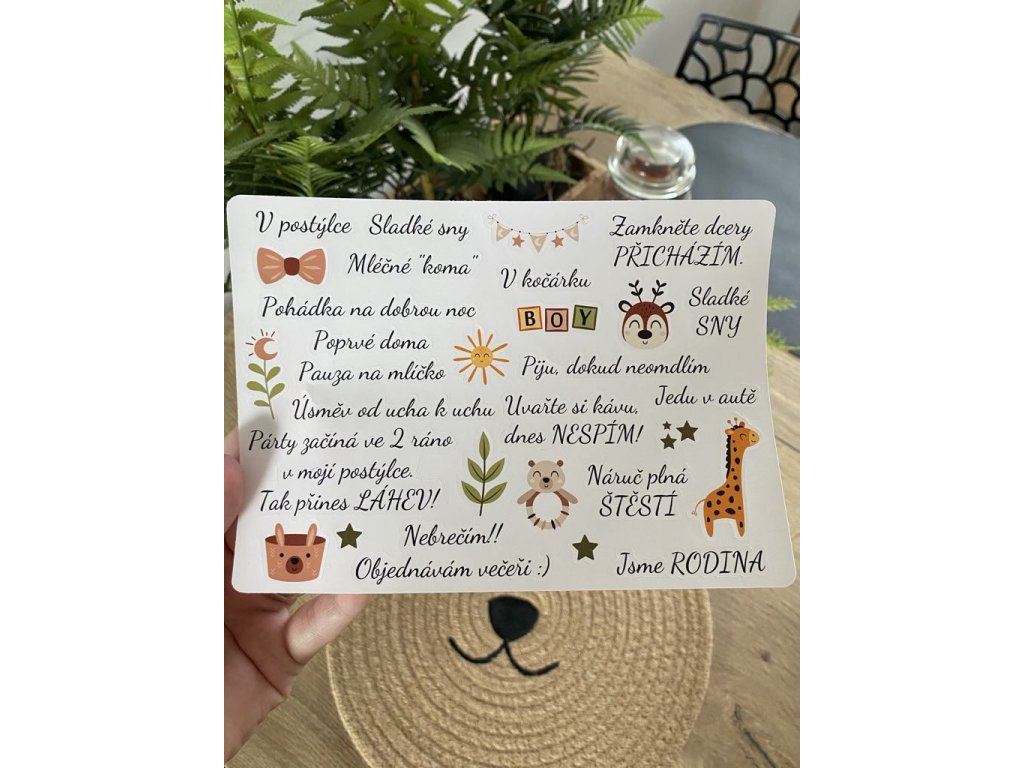 V postýlce
Sladké sny
Zamkněte dcery
PŘICHÁZÍM.
Mléčné "koma"
V kočárku
Pohádka na dobrou noc
BOY
Sladké
SNY
Poprvé doma
Pauza na mlíčko
Piju, dokud neomdlím
Jedu v autě
Úsměv od ucha k uchu
Uvařte si kávu,
dnes NESPÍM!
Párty začíná ve 2 ráno
v mojí postýlce.
Tak přines LÁHEV!
Náruč plná
ŠTĚSTÍ
Nebrečím!!
Objednávám večeři :)
Jsme RODINA